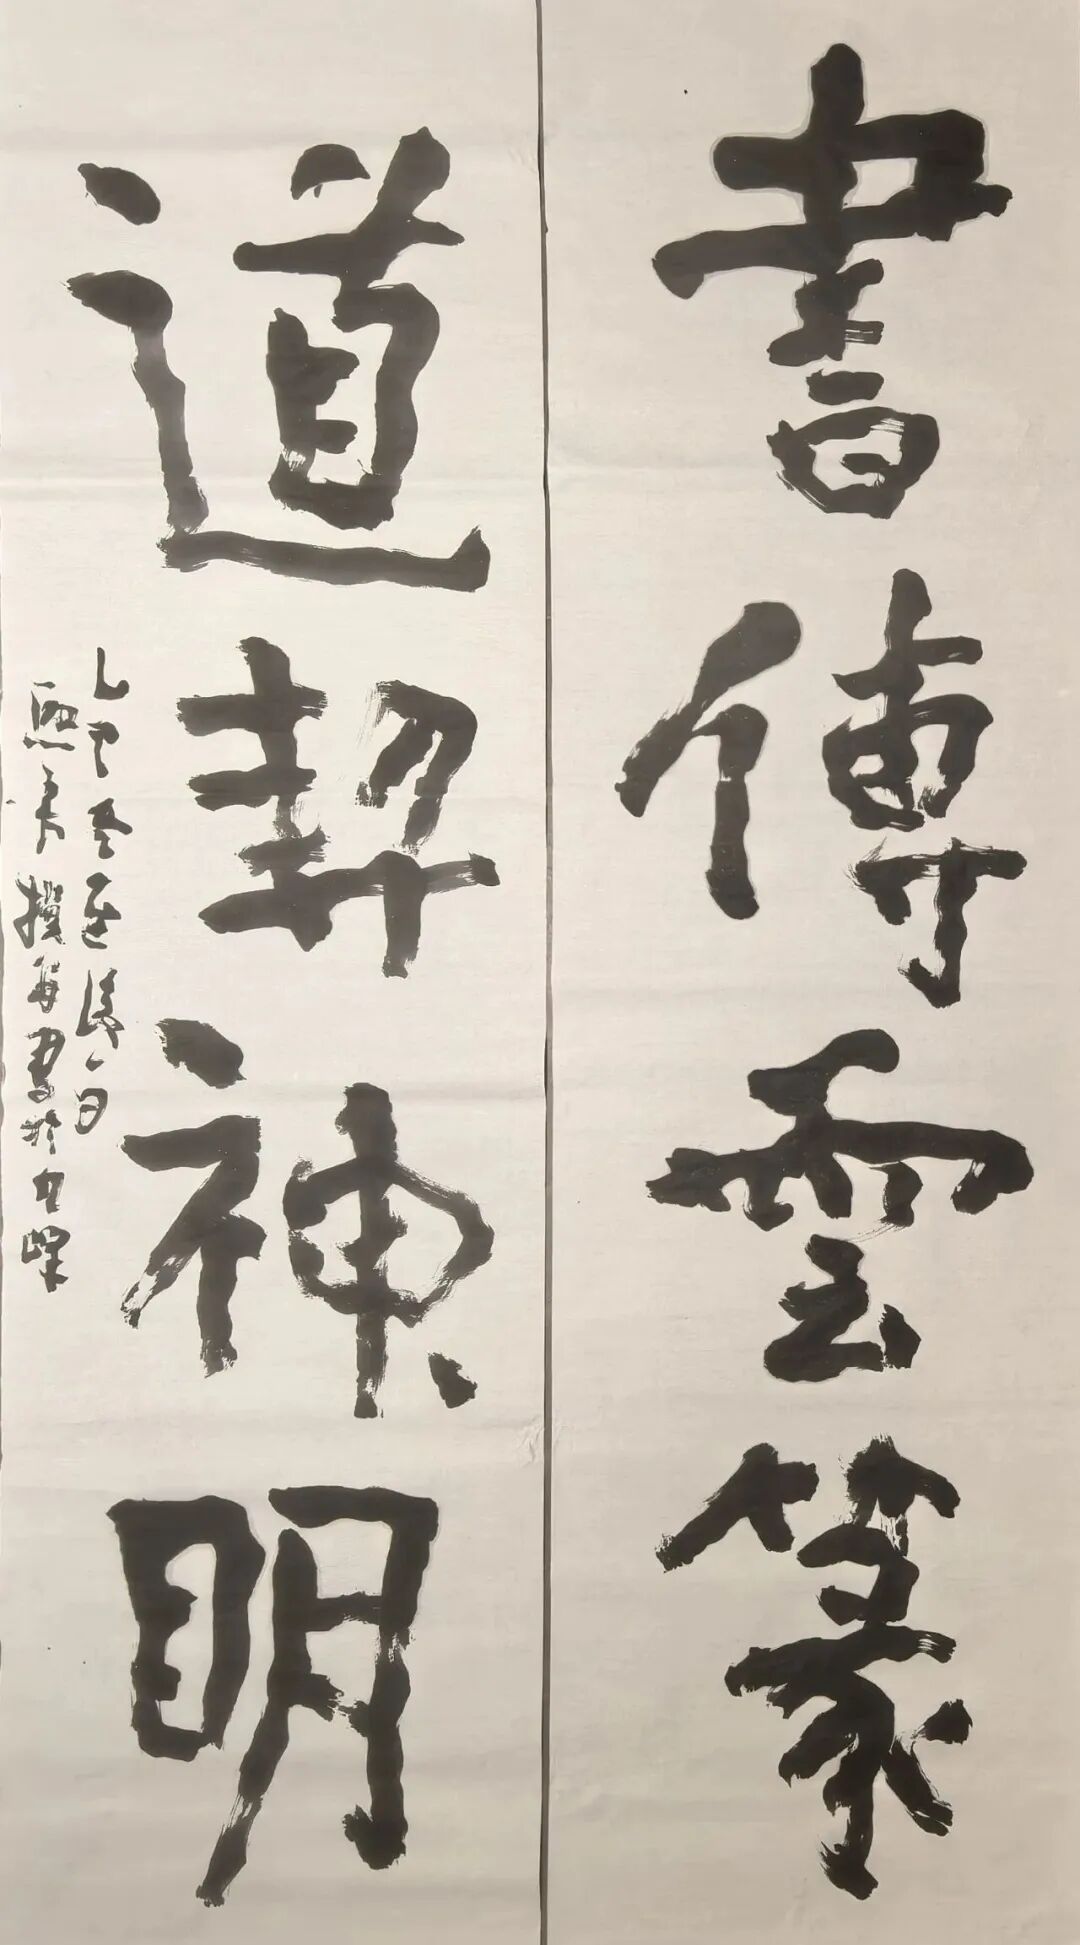 書傳雲篆
道契神明
乙巳冬至後一日
熙宗撰聯書於九峰